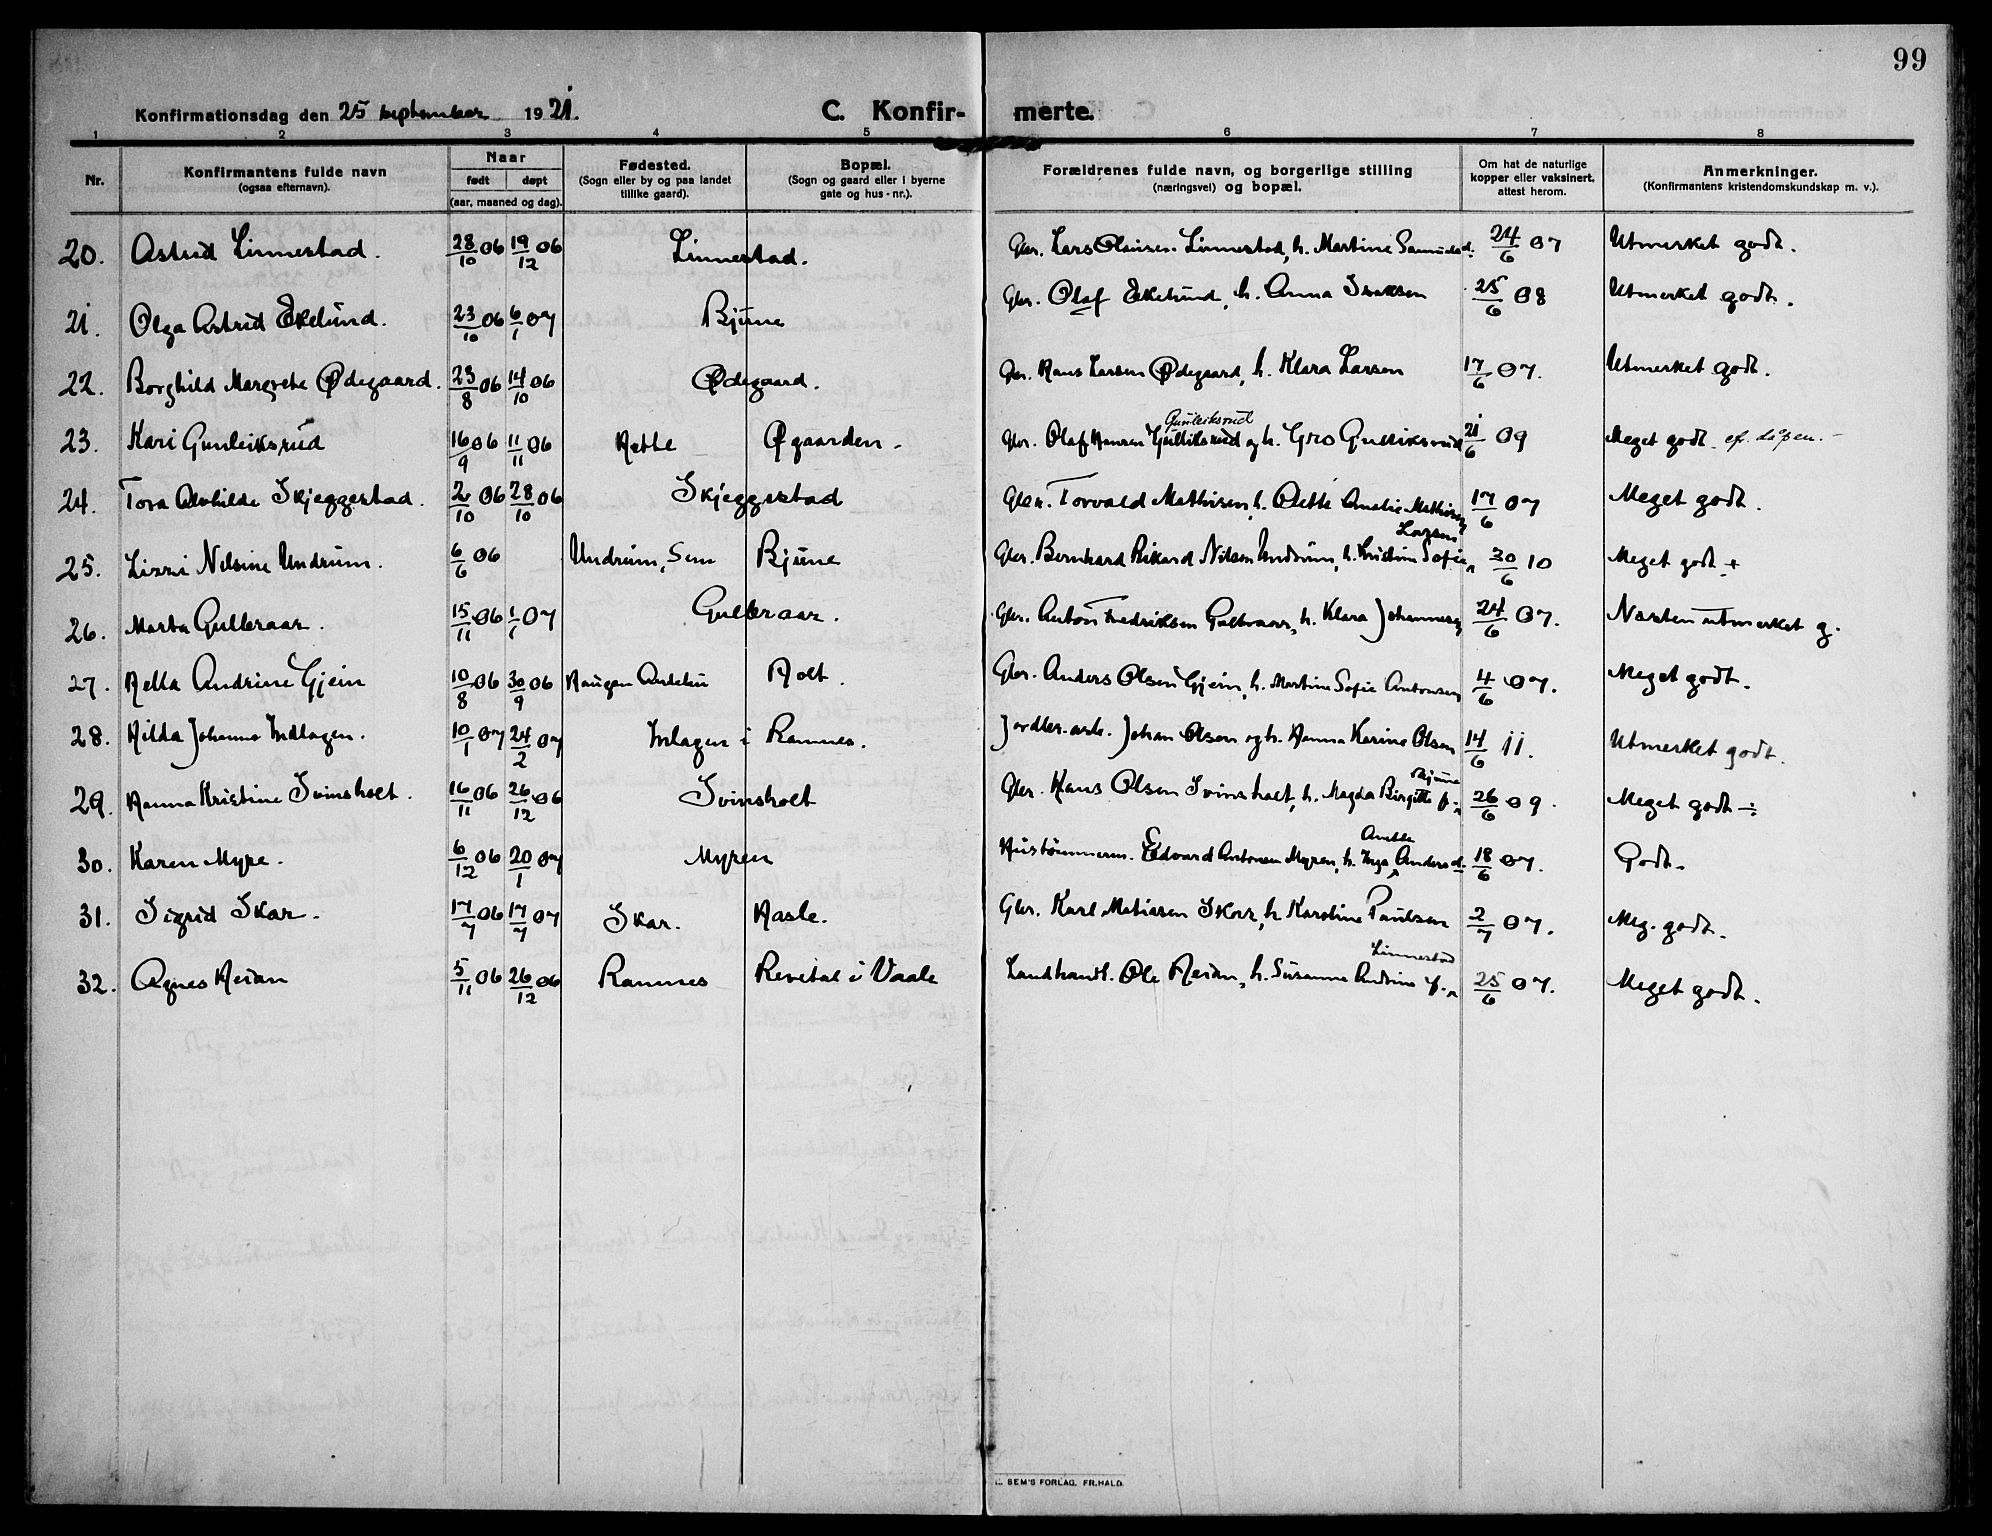 99
Konfirmationsdag den 25 september 1921. C. Konfir- merte.
1 2 3 4 5 6 7 8
Nr. Konfirmantens fulde navn (ogsaa efternavn). Naar født døpt (aar, maaned og dag). Fødested. (Sogn eller by og paa landet tillike gaard). Bopæl. (Sogn og gaard eller i byerne gate og hus-nr.). Forældrenes fulde navn, og borgerlige stilling (næringsvei) og bopæl. Om hat de naturlige kopper eller vaksinert, attest herom. Anmerkninger. (Konfirmantens kristendomskundskap m. v.).
20. Astrid Linnestad. 28/10 06 19/12 06 Linnestad. Gbr. Lars Olausen Linnestad, h. Martine Samuelsd. 24/6 07 Utmerket godt.
21. Olga Astrid Ekelund. 23/10 06 6/1 07 Bjune Gbr. Olaf Ekelund, h. Anna Isaksen 25/6 08 Utmerket godt.
22. Borghild Margrethe Ødegaard. 23/8 06 14/10 06 Ødegaard. Gbr. Hans Larsen Ødegaard, h. Klara Larsen 17/6 07. Utmerket godt.
23. Kari Gunleiksrud 16/9 06 11/11 06 Øgaarden. Gbr. Olaf Hansen Gulliksrud Gunleiksrud og h. Gro Gulliksrud 21/6 09 Meget godt.
24. Tora Alvhilde Skjeggestad. 2/10 06 28/10 06 Skjeggestad Gbr. Torvald Mathisen, h. Amalie Mathisen 17/6 07 Meget godt.
25. Lizzi Nilsine Undrum. 6/6 06 Undrum, Sem Bjune Gbr. Bernhard Rikard Nilsen Undrum, h. Kristine Sofie Larsen 30/6 10 Meget godt +
26. Marta Gulbraar. 15/11 06 1/1 07 Gulbraar. Gbr. Anton Fredriksen Gulbraar, h. Klara Johannesen 24/6 07. Næsten utmerket g.
27. Hella Andrine Gjein 10/8 06 30/9 06 Haugan Andebu Holt. Gbr. Anders Olsen Gjein, h. Martine Sofie Antonsen 4/6 07. Meget godt.
28. Hilda Johanne Indlagen. 10/1 07 24/2 07 Inlagen i Ramnes. Jordbr. arb. Johan Olsen og h. Hanna Karine Olsen 14/6 11. Utmerket godt.
29. Hanna Kristine Svinsholt. 16/11 06 26/12 06 Svinsholt Gbr. Hans Olsen Svinsholt, h. Magda Birgitte f. Bjune 26/6 09. Meget godt ÷
30. Karen Myre. 6/12 06 20/1 07 Myren Hustømmerm. Edvard Antonsen Myren, h. Inga Anette Andersd. 18/6 07. Godt.
31. Sigrid Skar. 17/7 06 17/7 07 Skar. Hasle. Gbr. Karl Matiasen Skar, h. Karoline Paulsen 2/7 07. Meg. godt.
32. Agnes Heian 5/11 06 26/12 06 Ramnes Revetal i Vaale Landhandl. Ole Heian, h. Susanne Andrine f. Linnestad 25/6 07. Meget godt.
SEM'S FORLAG, FR.HALD.